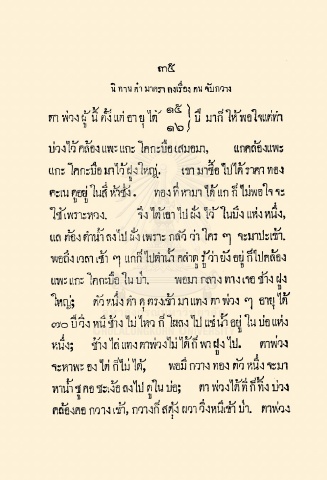 ๓๕
นิ ทาน คำ มาตรา กงเรื่อง คน จับกวาง
ตา พ่วง ผู้ นี้ ตั้ง แต่ อา ยุ ได้ ๑๕ } ปี มาก็ ให้ พอใจแต่ทำ
๑๖
บ่วงไว้ คล้องแพะ แกะ ไคกะบือ เสมอมา, แกคล้องแพะ
แกะ ไคกะบือ มาไว้ ฝูงใหญ่. เขา มาซื้อ ไปได้ ราคา ทอง
คะเน ดูอยู่ ในสี่ หัวชั่ง. ทอง ที่ หามา ได้ แก ก็ ไม่พอใจ จะ
ใช้ เพราะหวง. จึง ได้ เอา ไป ฝัง ไว้ ในบึง แห่ง หนึ่ง,
แล ต้อง ดำน้ำ ลงไป ฝัง เพราะ กลัว ว่า ใคร ๆ จะมาปะเข้า.
พอถึง เวลา เช้า ๆ แกก็ ไปดำน้ำ คลำดู รู้ ว่า ยัง อยู่ ก็ไปคล้อง
แพะ แกะ ไคกะบือ ใน ป่า. พอมา กลาง ทาง เจอ ช้าง ฝูง
ใหญ่; ตัว หนึ่ง ดำ ดุ ตรง เข้า มา แทง ตา พ่วง ๆ อายุ ได้
๗๐ ปี วิ่ง หนี ช้าง ไม่ ไหว ก็ ไถลง ไป แช่น้ำ อยู่ ใน บ่อ แห่ง
หนึ่ง; ช้าง ไล่ แทง ตาพ่วงไม่ ได้ ก็ พา ฝูง ไป. ตาพ่วง
จะหาพะ อง ไต่ ก็ไม่ ได้, พอมี กวาง ทอง ตัว หนึ่ง จะมา
หาน้ำ ชู คอ ชะเง้อ ลงไป ดูใน บ่อ; ตา พ่วงได้ ที ก็ ทิ้ง บ่วง
คล้องคอ กวาง เข้า, กวางก็ สดุ้ง ผวา วิ่งหนีเข้า ป่า. ตาพ่วง